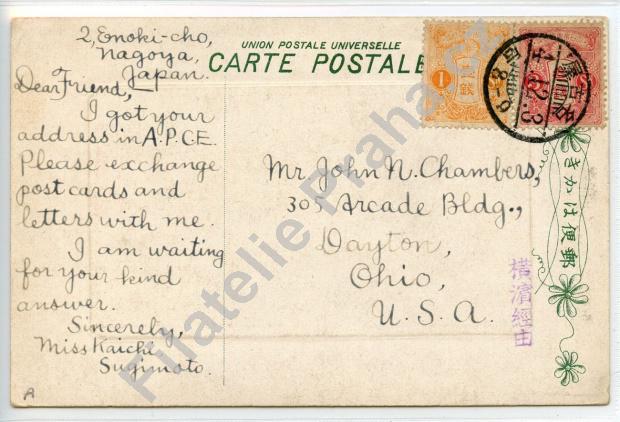 2, Enoki-cho,
Nagoya,
Japan.
UNION POSTALE UNIVERSELLE
CARTE POSTALE
Dear Friend,
I got your
address in A.P.C.E.
Please exchange
post cards and
letters with me.
I am waiting
for your kind
answer.
Sincerely,
Miss Kaichi
Sugimoto.
Mr. John N. Chambers,
305 Arcade Bldg.,
Dayton,
Ohio,
U. S. A.
横濱經由
きかは便郵
1
銭
4.12.3
Filatelie Praha